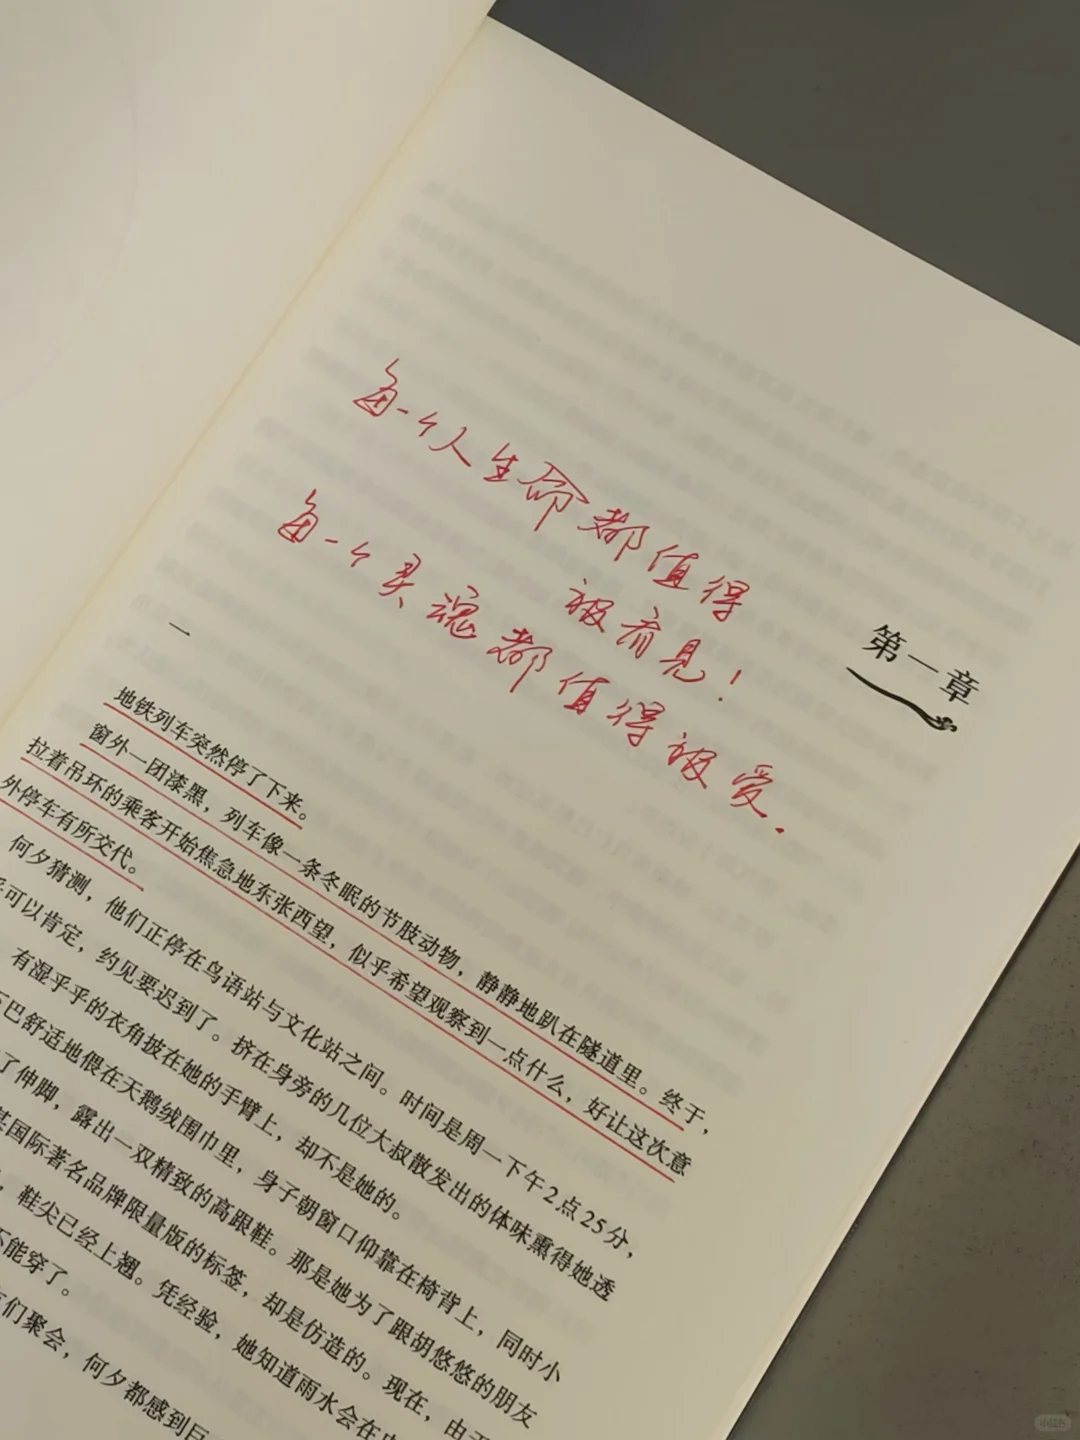 每一个人生命都值得
被看见！
每一个灵魂都值得被爱.
第一章
一
地铁列车突然停了下来。
窗外一团漆黑，列车像一条冬眠的节肢动物，静静地趴在隧道里。终于，
拉着吊环的乘客开始焦急地东张西望，似乎希望观察到一点什么，好让这次意
外停车有所交代。
何夕猜测，他们正停在鸟语站与文化站之间。时间是周一下午2点25分，
乎可以肯定，约见要迟到了。挤在身旁的几位大叔散发出的体味熏得她透
有湿乎乎的衣角披在她的手臂上，却不是她的。
下巴舒适地偎在天鹅绒围巾里，身子朝窗口仰靠在椅背上，同时小
了伸脚，露出一双精致的高跟鞋。那是她为了跟胡悠悠的朋友
某国际著名品牌限量版的标签，却是仿造的。现在，由于
，鞋尖已经上翘。凭经验，她知道雨水会在
不能穿了。
们聚会，何夕都感到巨
小红书